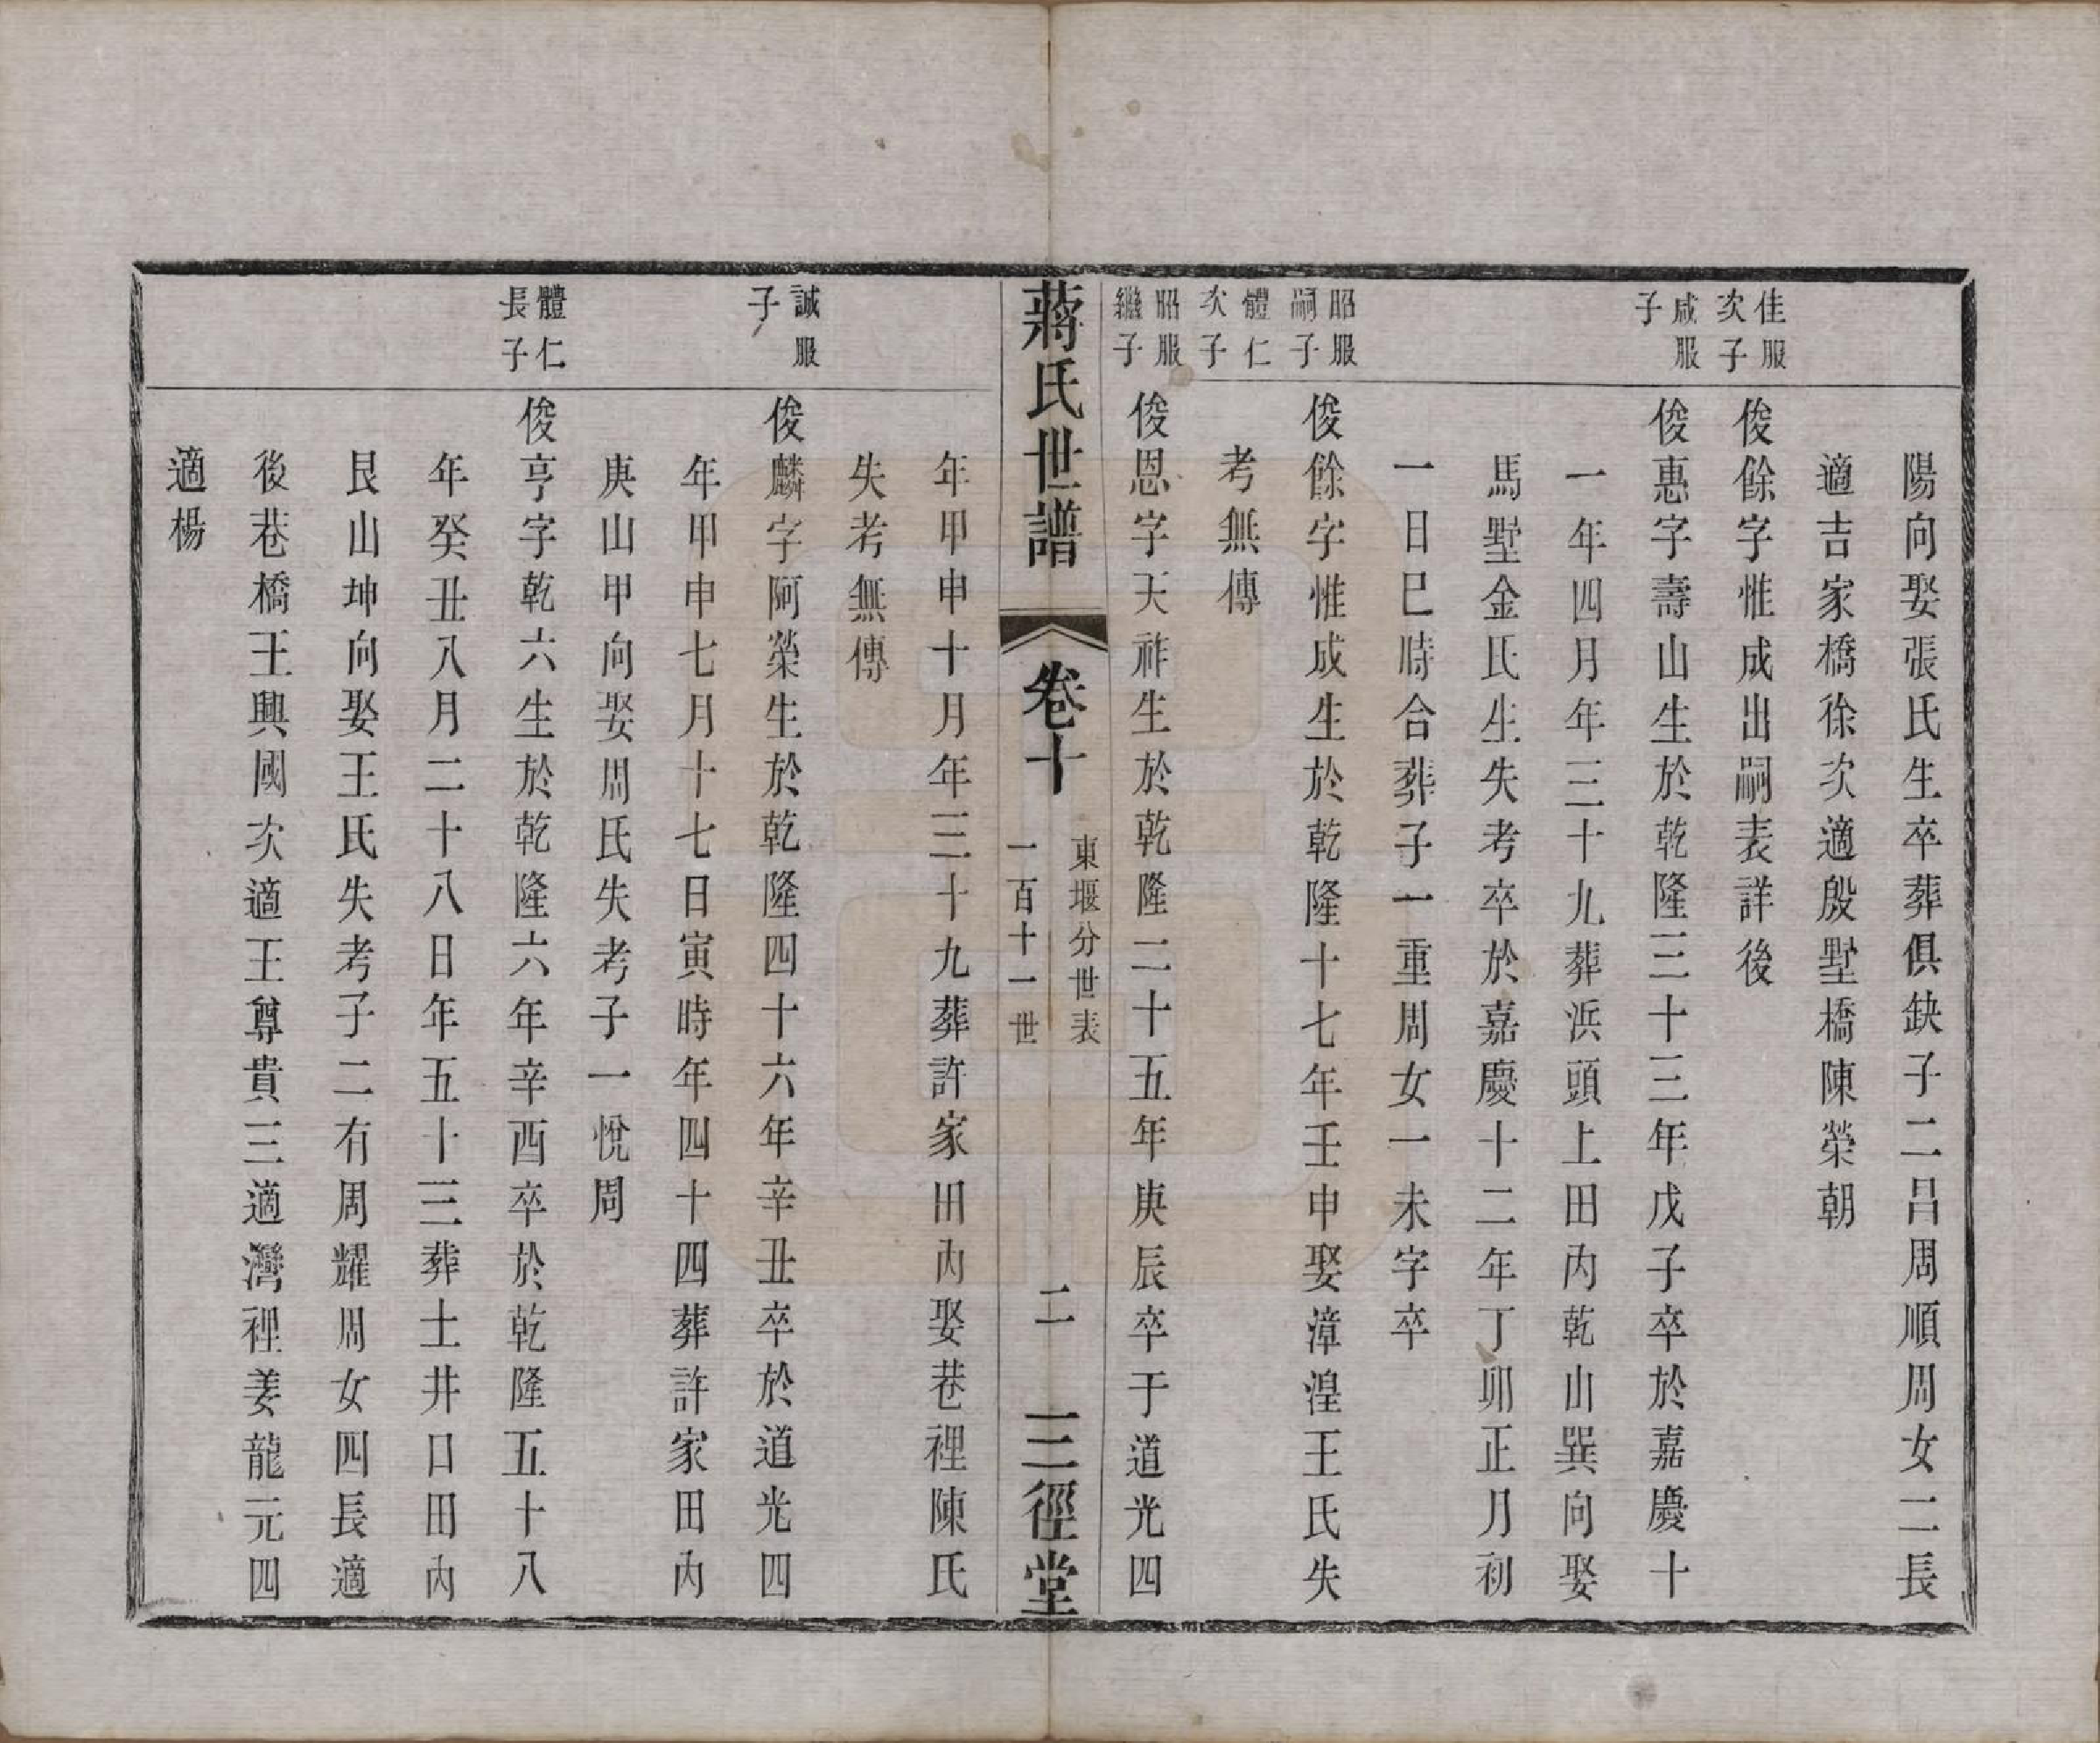 陽向娶張氏生卒葬俱缺子二呂周順周女二長
適吉家橋徐次適殷墅橋陳榮朝
佳服次子
俊餘字惟成出嗣表詳後
咸服子
俊惠字壽山生於乾隆三十三年戊子卒於嘉慶十
一年四月年三十九葬浜頭上田內乾山巽向娶
馬墅金氏生失考卒於嘉慶十二年丁卯正月初
一日巳時合葬子一重周女一未字卒
昭服嗣子
俊餘字惟成生於乾隆十七年壬申娶漳湟王氏失
體仁次子
考無傳
昭服繼子
俊恩字天祚生於乾隆二十五年庚辰卒于道光四
蔣氏世譜 卷十 東堰分世表 一百十一世 二 三徑堂
年甲申十月年三十九葬許家田內娶巷裡陳氏
失考無傳
誠服子
俊麟字阿榮生於乾隆四十六年辛丑卒於道光四
年甲申七月十七日寅時年四十四葬許家田內
庚山甲向娶周氏失考子一悅周
體仁長子
俊亨字乾六生於乾隆六年辛酉卒於乾隆五十八
年癸丑八月二十八日年五十三葬土井口田內
艮山坤向娶王氏失考子二有周耀周女四長適
後巷橋王興國次適王尊貴三適灣裡姜龍元四
適楊